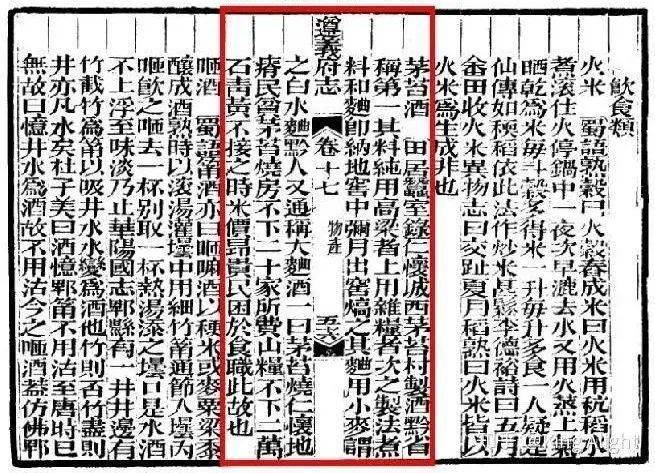 飲食類
火米　蜀語熟穀曰火穀舂成米曰火米用秔稻水
煮滾住火停鍋中一夜次早漉去水又用火蒸上氣
晒乾爲米每斗穀多得米一升每升多食一人疑是
仙傳如稉稻依此法作炒米甚鬆李德裕詩曰五月
畬田收火米異物志曰交趾夏月稻熟曰火米皆以
火米爲生成非也
茅苔酒　田居蠶室錄仁懷城西茅苔村製酒黔省
稱第一其料純用高梁者上用雜糧者次之製法煮
料和麯卽納地窖中彌月出窖熇之其麯用小麥謂
遵義府志　卷十七　物產
之白水麯黔人又通稱大麯酒一曰茅苔燒仁懷地
瘠民貧茅苔燒房不下二十家所費山糧不下二萬
石青黃不接之時米價昂貴民困於食職此故也
咂酒　蜀語南酒亦曰咂嘛酒以稉米或麥粟梁黍
釀成酒熟時以滚湯灌壜中用細竹筩通節入壜內
咂飲之咂去一杯別取一杯熱湯添之壜口是水酒
不上浮至味淡乃止華陽國志郫縣有一井井邊有
竹截竹爲筩以吸井水水變爲酒他竹則否竹盡則
井亦凡水矣杜子美曰酒憶郫筩不用沽至唐時已
無故曰憶井水爲酒故不用沽今之咂酒蓋仿佛郫